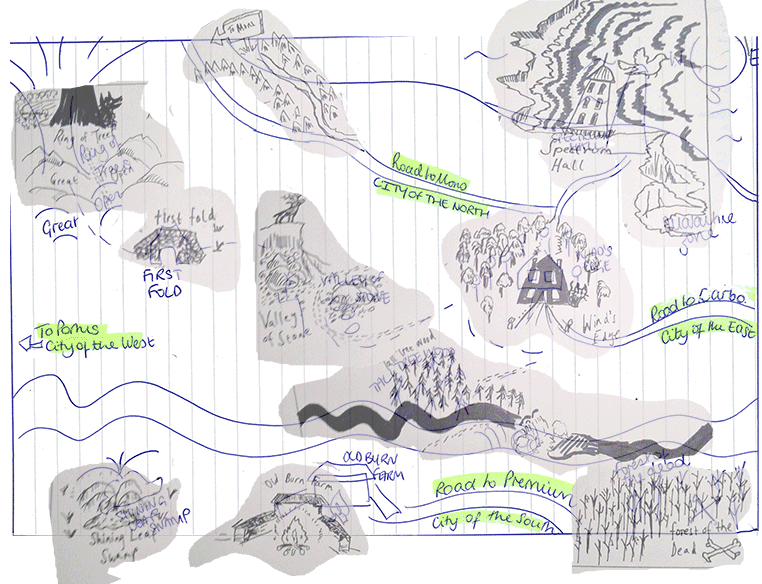 To Mono
Ring of Trees
Great
Great
First fold
FIRST
FOLD
Road to Mono
CITY OF THE NORTH
Spectrum
Hall
Quarantine
zone
Valley
of Stone
VALLEY OF
STONE
Wind's
Edge
Road to Carbo
City of the EAST
To Pomus
City of the West
Tall Tree Wood
OLD BURN
FARM
Old Burn Farm
Road to Premium
City of the South
SHINING
LEAF
SWAMP
Shining Leaf
Swamp
Forest of
the Dead
Forest of the
Dead